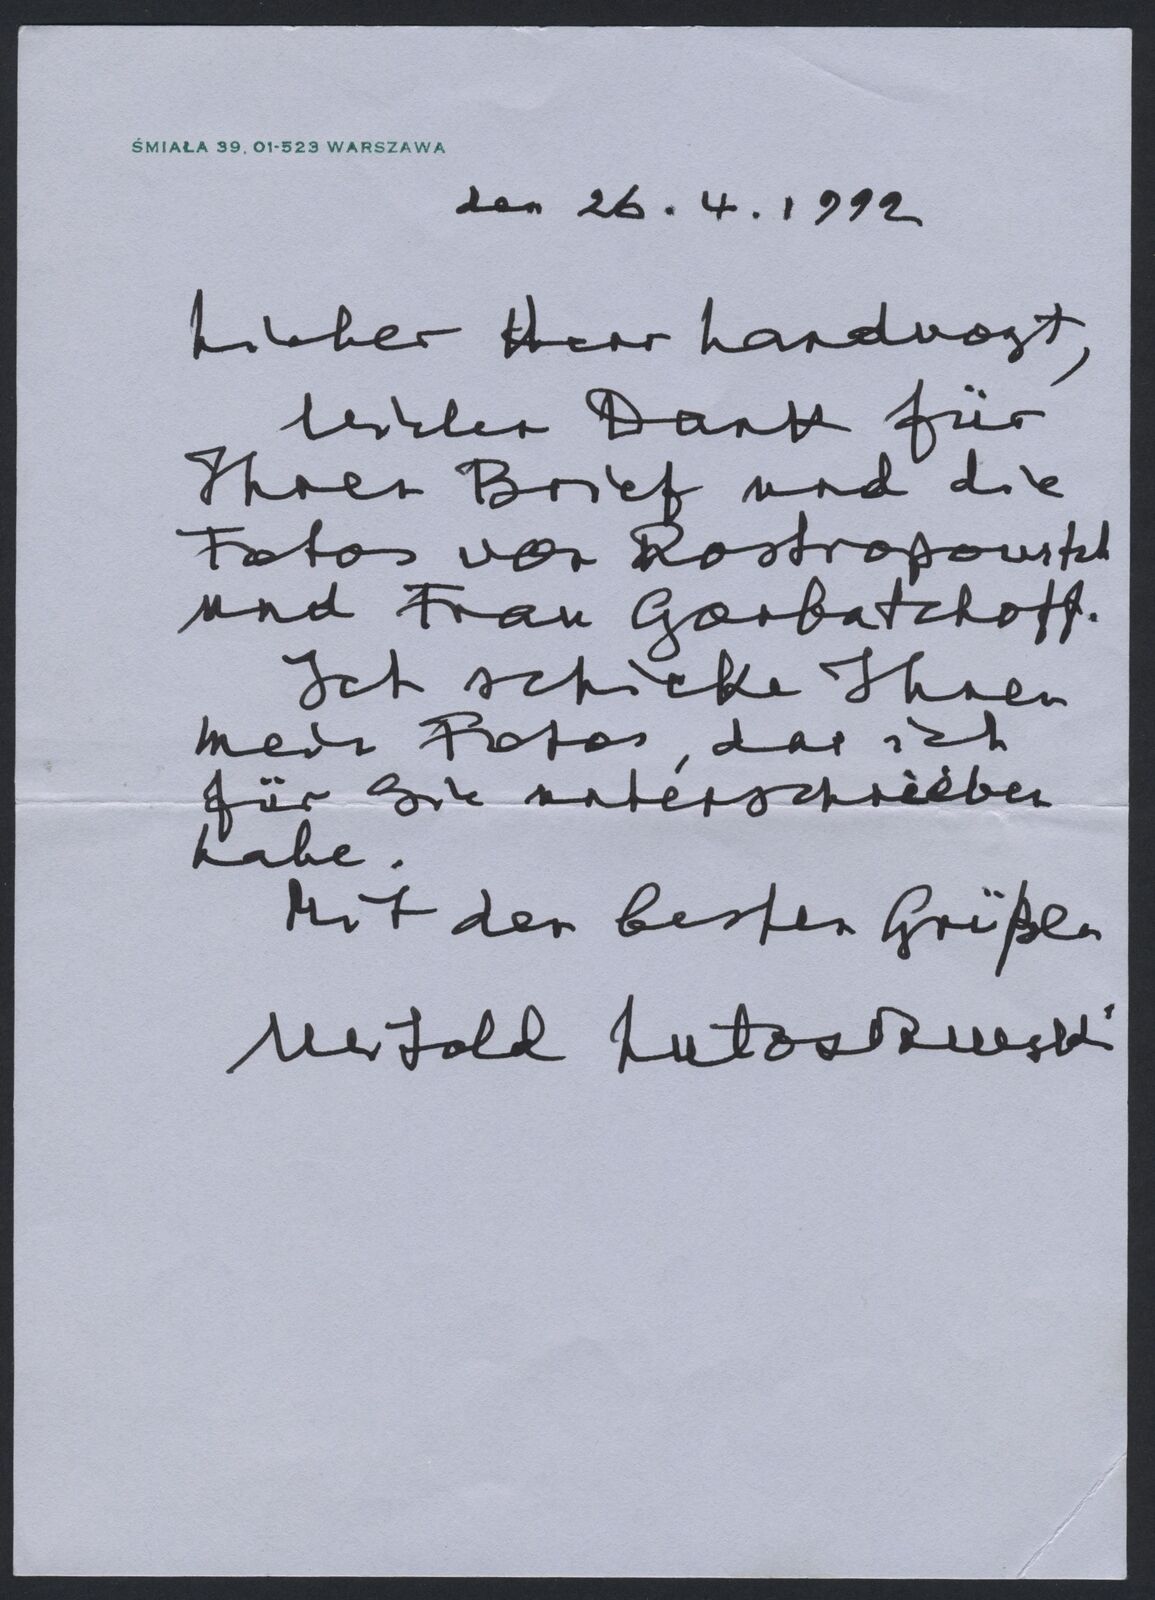 ŚMIAŁA 39, 01-523 WARSZAWA
den 26.4.1992
Lieber Herr Landvogt,
Vielen Dank für
Ihren Brief und die
Fotos von Rostropowitch
und Frau Gorbatchoff.
Ich schicke Ihnen
mein Fotos, das ich
für Sie unterschrieben
habe.
Mit den besten Grüßen
Witold Lutosławski